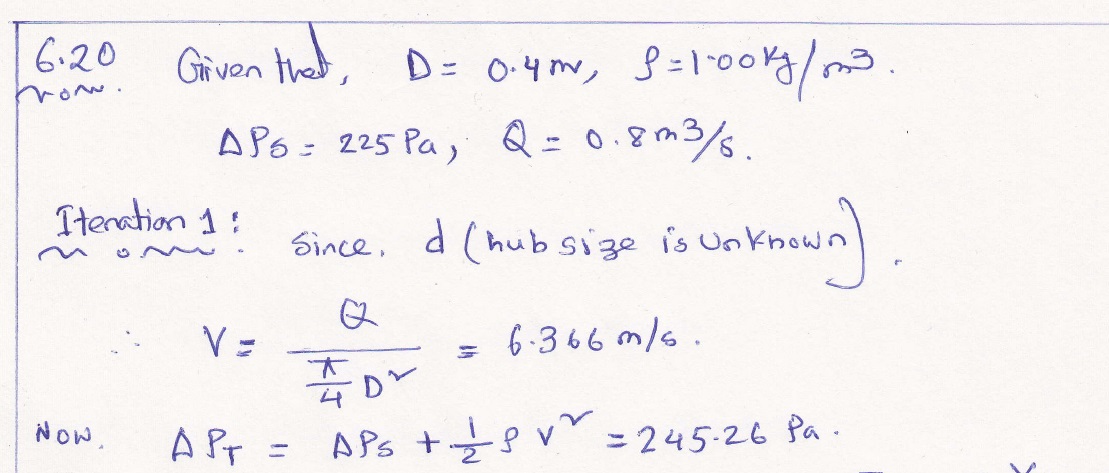 6.20 Given that, D = 0.4 m, ρ = 1.00 kg/m3.
ΔPs = 225 Pa, Q = 0.8 m3/s.
Iteration 1: Since, d (hub size is unknown).
∴ V = Q / (π/4 D²) = 6.366 m/s.
Now, ΔPT = ΔPs + 1/2 ρ V² = 245.26 Pa.